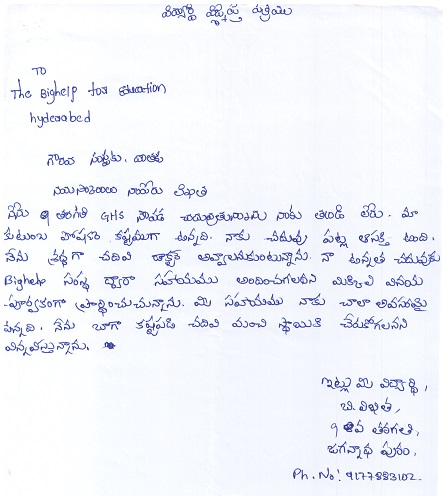 విద్యార్థి విజ్ఞప్తి పత్రము
TO
The Bighelp for Education
hyderabad
గౌరవ సంస్థకు,
లిఖిత
నేను 9 తరగతి GHS చదువుతున్నాను నాకు తండ్రి లేరు. మా
కుటుంబ పోషణ కష్టముగా ఉన్నది. నాకు చదువు పట్ల ఆసక్తి ఉంది.
నేను శ్రద్ధగా చదివి డాక్టర్ అవ్వాలనుకుంటున్నాను. నా ఉన్నత చదువుకు
Bighelp సంస్థ ద్వారా సహాయము అందించగలరని మిక్కిలి వినయ
పూర్వకంగా ప్రార్థించుచున్నాను. మీ సహాయము నాకు చాలా అవసరమై
ఉన్నది. నేను బాగా కష్టపడి చదివి మంచి స్థాయికి చేరుకోగలనని
విన్నవిస్తున్నాను.
ఇట్లు మీ విద్యార్థి,
బి. లిఖిత,
9 వ తరగతి,
జగన్నాధ పురం,
Ph. No: 9177883102.